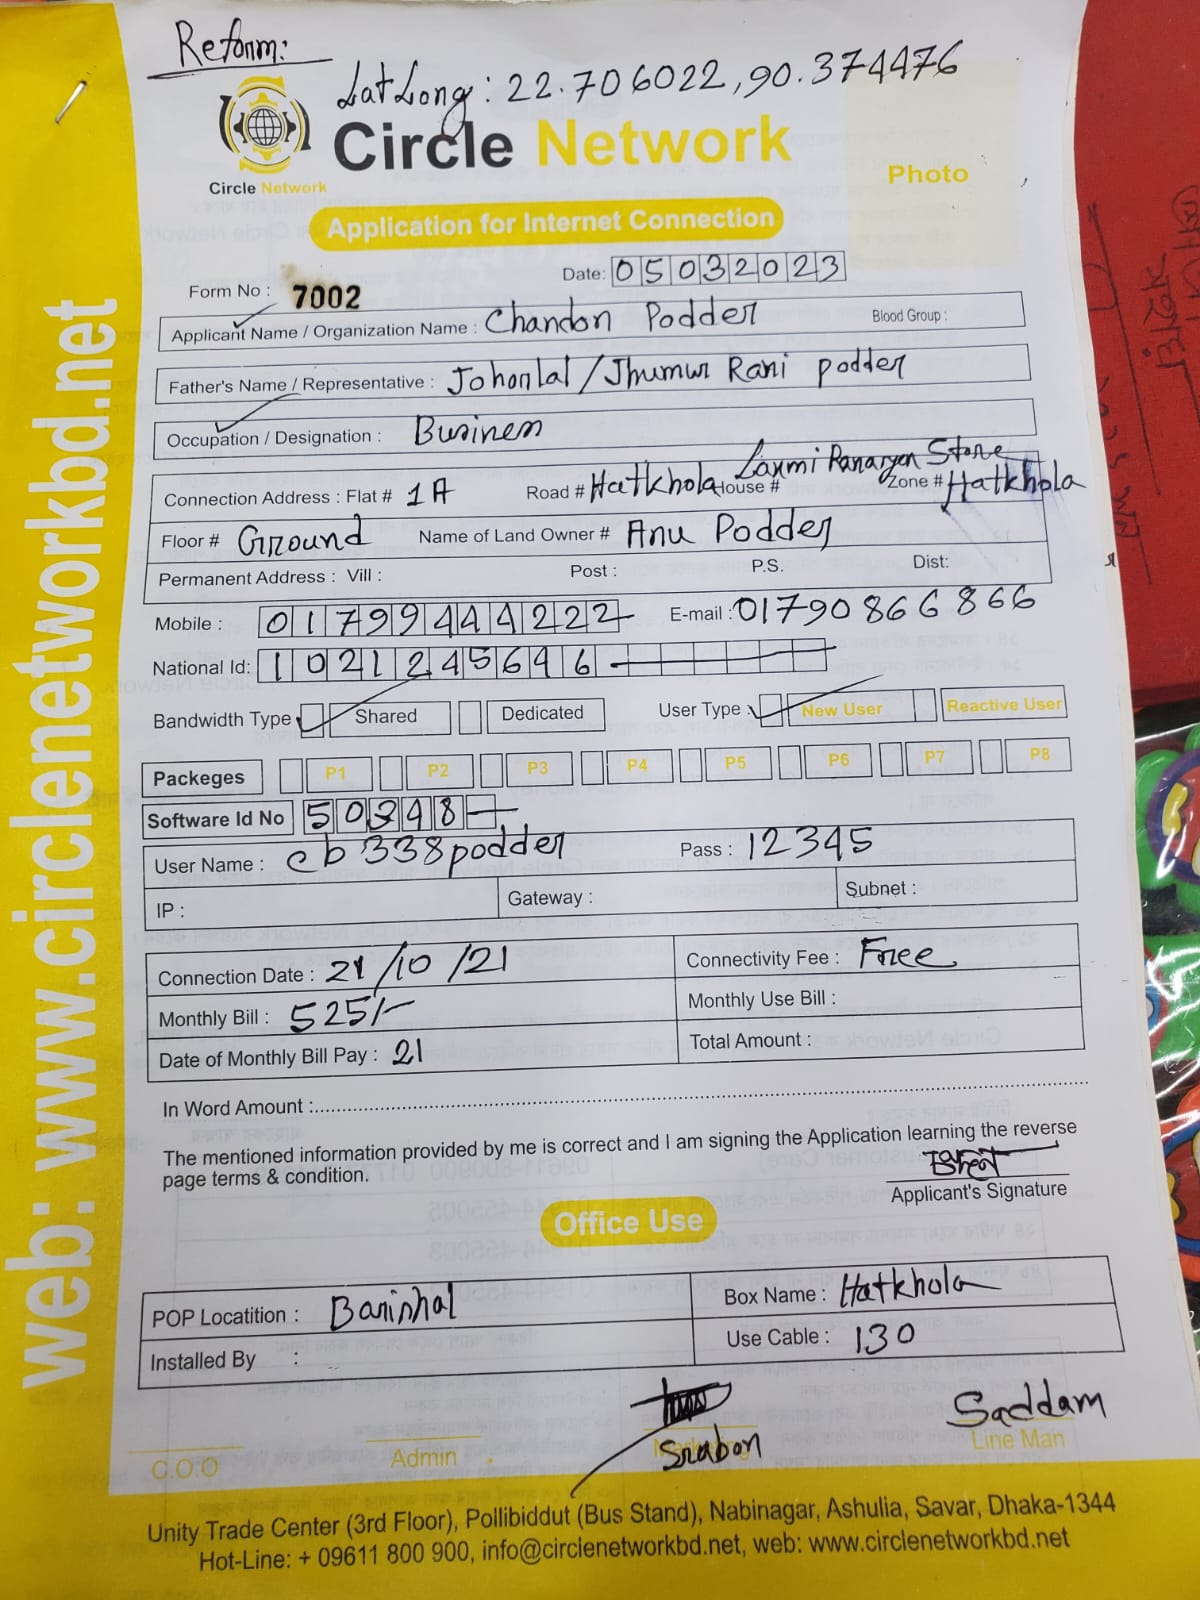 Reform:
Lat Long : 22.706022, 90.374476
Circle Network
Circle Network
Photo
Application for Internet Connection
Date: 05032023
Form No : 7002
Applicant Name / Organization Name : Chandon Podder Blood Group :
Father's Name / Representative : Johorlal / Jhumur Rani podder
Occupation / Designation : Business
Connection Address : Flat # 1A Road # Hatkhola House # Laxmi Store Zone # Hatkhola
Floor # Ground Name of Land Owner # Anu Podder
Permanent Address : Vill : Post : P.S. Dist:
Mobile : 01799444222 E-mail : 01790866866
National Id: 1021245646
Bandwidth Type Shared Dedicated User Type New User Reactive User
Packeges P1 P2 P3 P4 P5 P6 P7 P8
Software Id No 50348
User Name : cb338podder Pass : 12345
IP : Gateway : Subnet :
Connection Date : 21/10/21 Connectivity Fee : Free
Monthly Bill : 525/- Monthly Use Bill :
Date of Monthly Bill Pay : 21 Total Amount :
In Word Amount :
The mentioned information provided by me is correct and I am signing the Application learning the reverse
page terms & condition.
Applicant's Signature
Office Use
POP Locatition : Barishal Box Name : Hatkhola
Installed By : Use Cable : 130
Srabon Saddam
C.O.O Admin Line Man
Unity Trade Center (3rd Floor), Pollibiddut (Bus Stand), Nabinagar, Ashulia, Savar, Dhaka-1344
Hot-Line: + 09611 800 900, info@circlenetworkbd.net, web: www.circlenetworkbd.net
web: www.circlenetworkbd.net